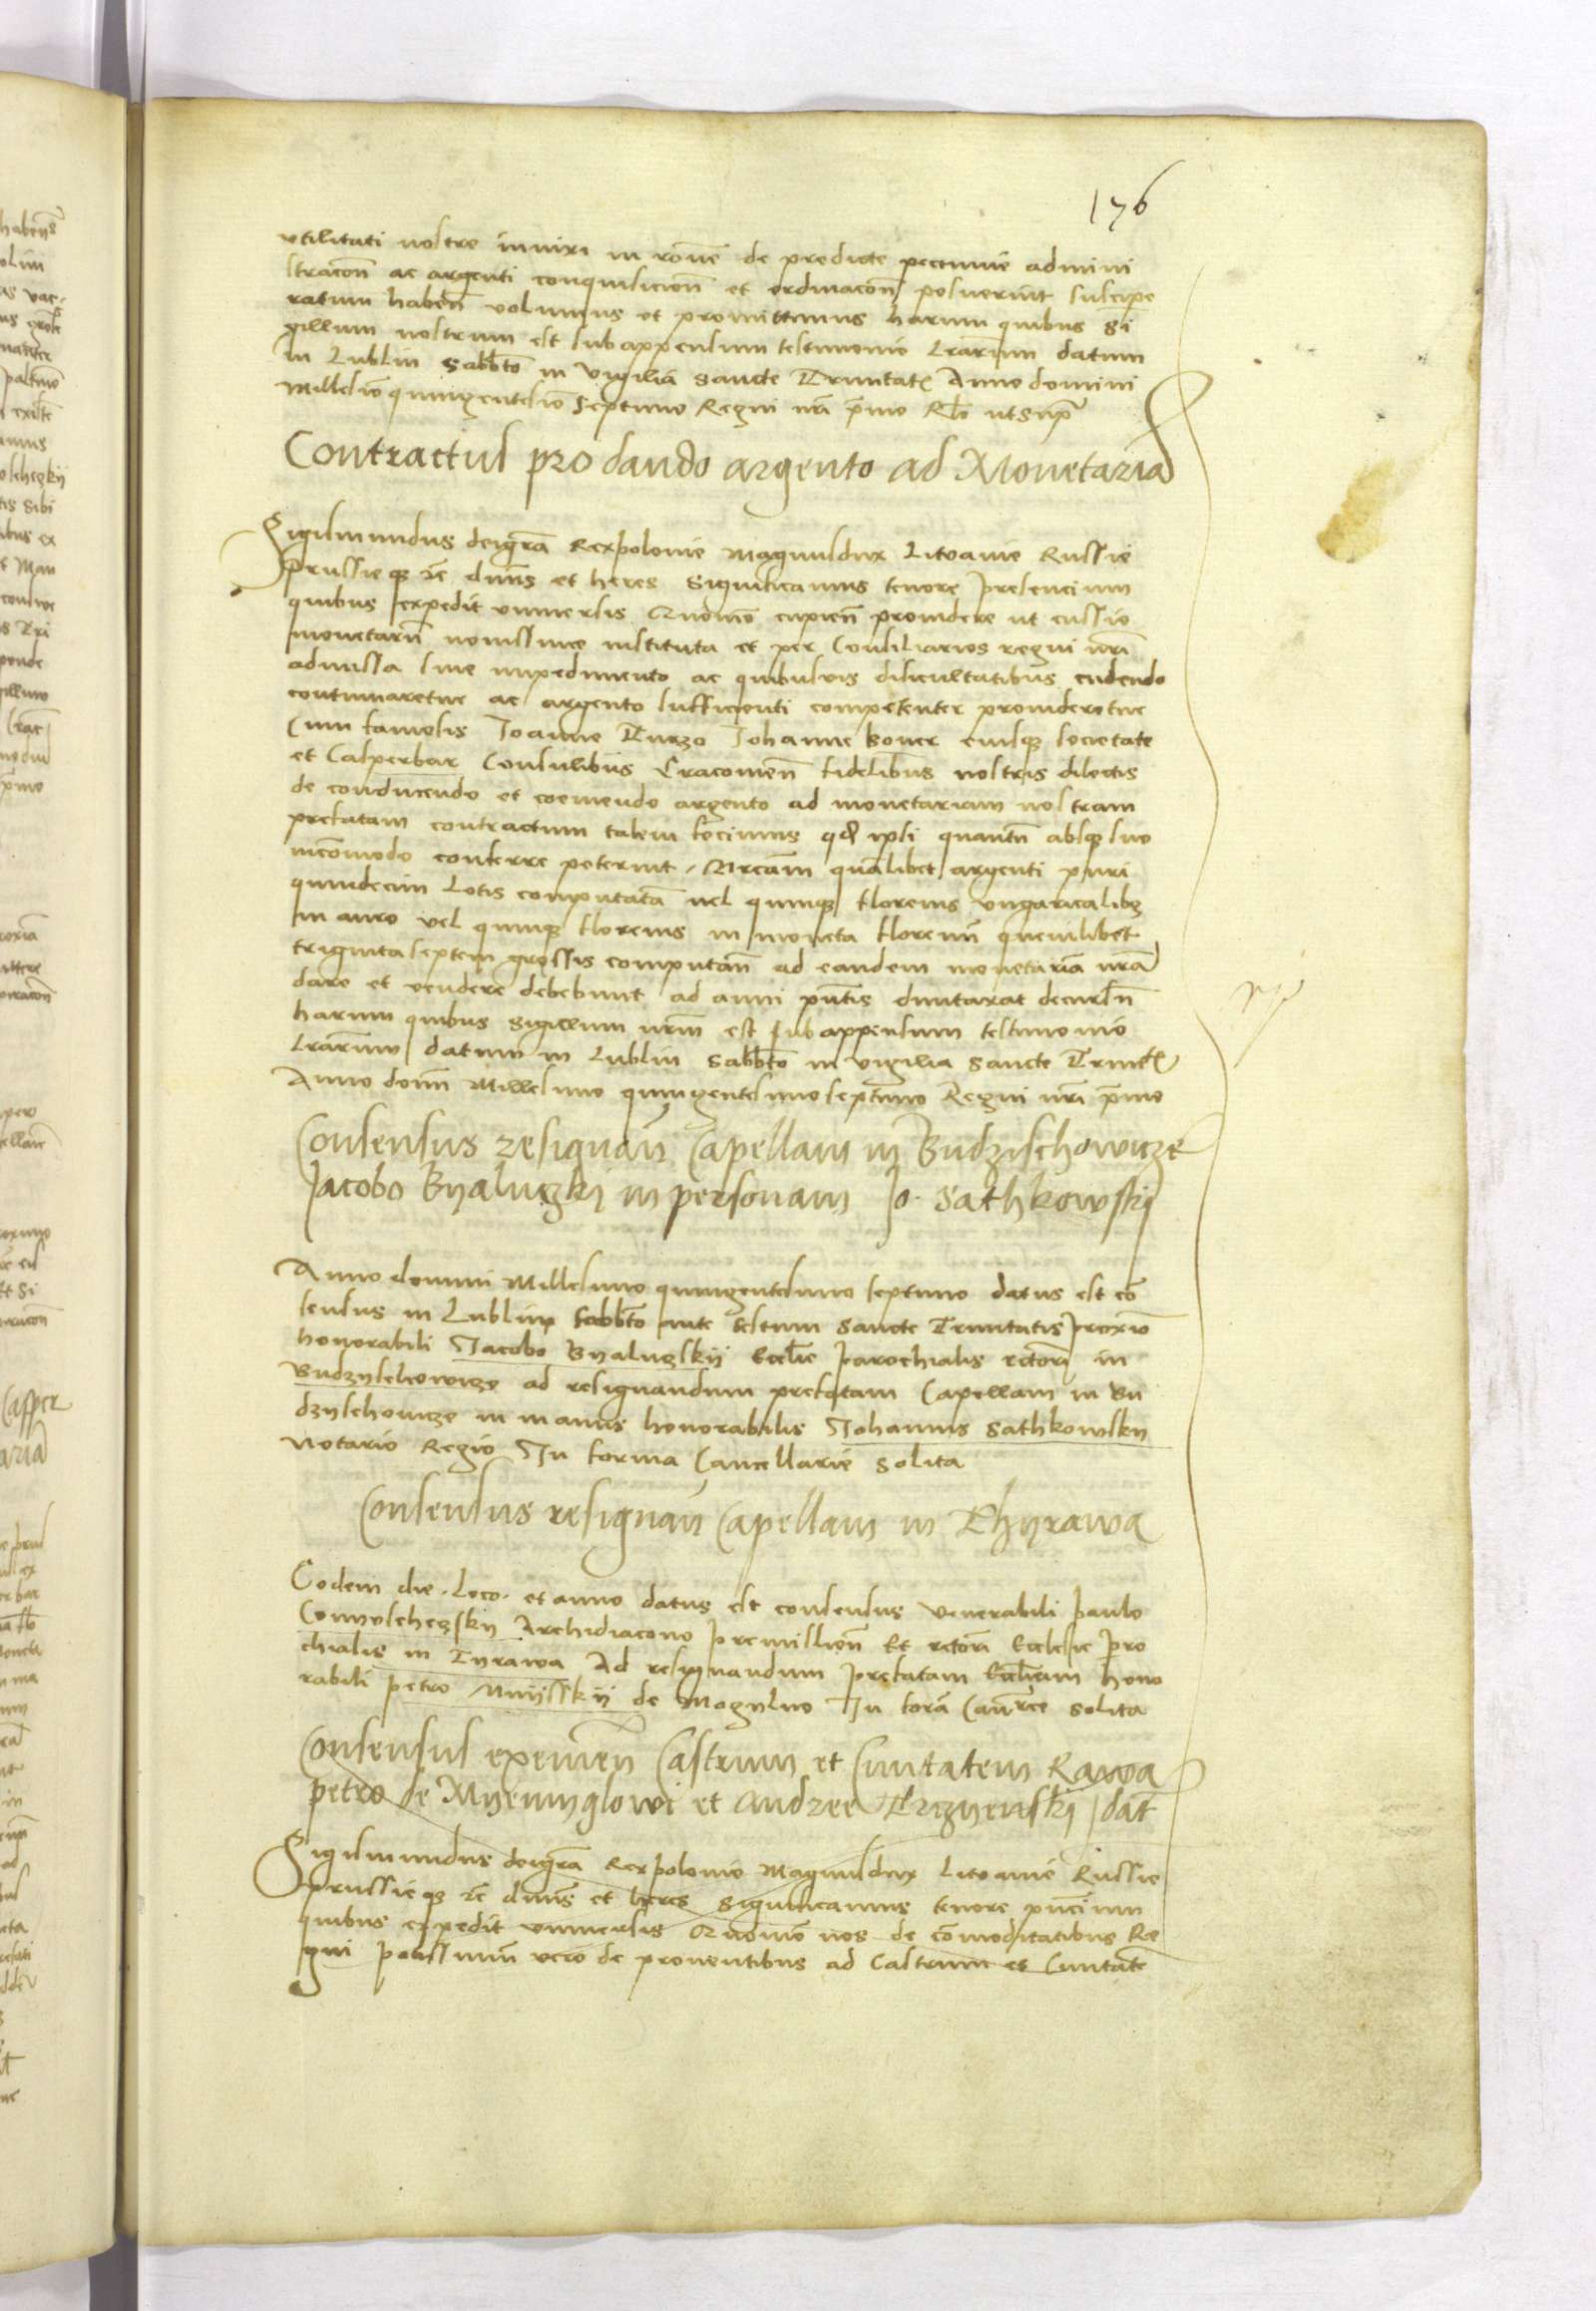 176
utilitati nostre inniti in ronē de predicte pecunie admini
stracoñ ac argenti conquisicioñ et ordinacoñ posuerint suscipe
ratum habeñ volumus et promittimus harum quibus Si
gillum nostrum est subappensum testimonio lrarum datum
in Lublin Sabbto in vigilia sancte Trinitatis Anno domini
Millesimo quingentesimo Septimo Regni nri primo Rlo ut supra
Contractus pro dando argento ad Monetaria
Sigismundus dei gra Rex polonie Magnus dux Litvanie Russie
prussieqꝫ etc dnus et heres Significamus tenore presencium
quibus expedit universis Quomo cupieñ providere ut cussio
monetarum novissime instituta et per Consiliarios regni nri
admissa sine impedimento ac quibusvis dificultatibus cudendo
continuaretur ac argento sufficienti competenter provideretur
Cum famosis Joanne Turzo Johanne boner eiusqꝫ societate
et Casper bar Consulibus Cracovieñ fidelibus nostris dilectis
de conducendo et coemendo argento ad monetariam nostram
prefatam contractum talem fecimus qd ipsi quantū absqꝫ suo
incōmodo conferre poterint Mrcam quālibet argenti puri
quindecim Lotis computatā vel quinqꝫ florenis ungaricalibꝫ
in auro vel quinqꝫ florenis in moneta florenū quemlibet
triginta septem grossis computañ ad eandem monetariā nrā
dare et vendere debebunt ad anni pntis duntaxat decursū
harum quibus Sigillum nrm est subappensum testimonio
Lrarum datum in Lublin Sabbto in vigilia Sancte Trinitatis
Anno domī Millesimo quingentesimo septimo Regni nri primo
Consensus resignañ Capellam in Budzischowicze
Jacobo Byalugzkj in personam Jo. Sathkowskj
Anno domini Millesimo quingentesimo septimo datus est cō
sensus in Lublin Sabbto ante festum Sancte Trinitatis proximo
honorabili Jacobo Byalugskij Ecclie parochialis rectori in
Budzyschowicze ad resignandum prefatam Capellam in Bu
dzyschowicze in manus honorabilis Johannis Sathkowsky
Notario Regio In forma Cancellarie solita
Consensus resignañ Capellam in Thyrawa
Eodem die . Loco . et anno datus est consensus Venerabili paulo
Archidiacono premislieñ Et rectori Ecclesie pro
chialis in Tyrawa Ad resignandum prefatam Eccliam hono
rabili petro de Mogylno In forā Canrie solita
Consensus exemeñ Castrum et Civitatem Rawa
petro de Myemyglowi et andree Trznenskj dat
Sigismundus dei gra Rex polonie Magnus dux Litvanie Russie
prussieqꝫ etc dnus et heres Significamus tenore pncium
quibus expedit universis Quomo nos de cōmoditatibus Re
gni potissimū vero de proventibus ad Castrum et Civitatē